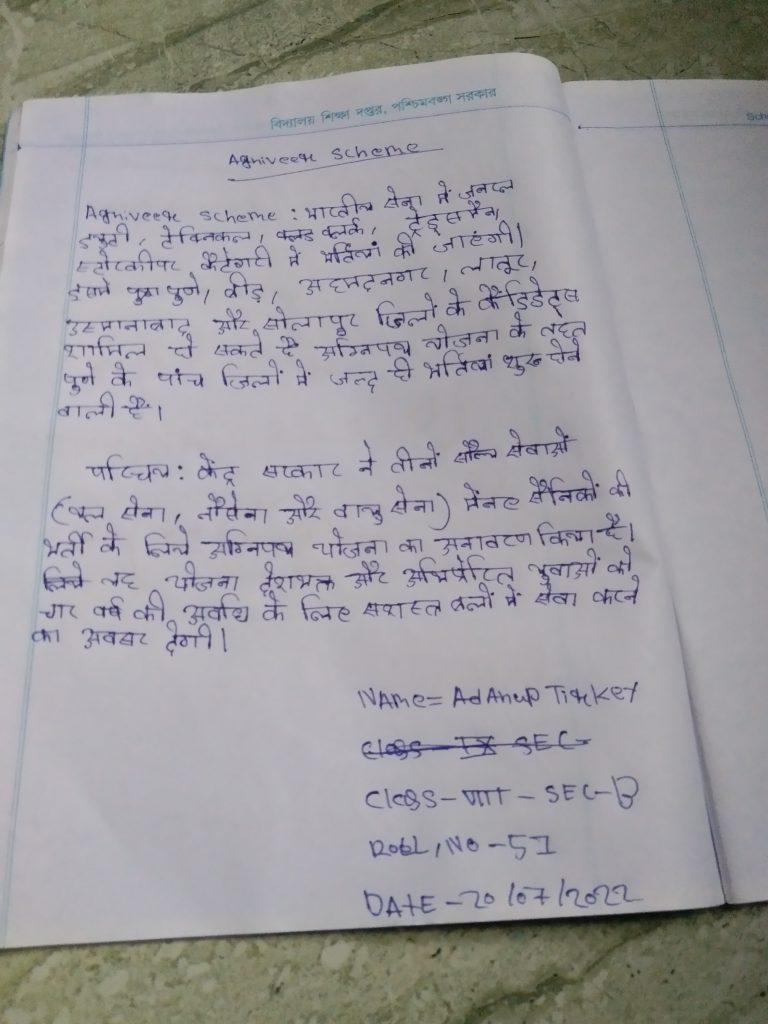 বিদ্যালয় শিক্ষা দপ্তর, পশ্চিমবঙ্গ সরকার
Agniveer scheme
Agniveer scheme : भारतीय सेना में जनरल
ड्यूटी, टेक्निकल, क्लर्क, ट्रेड्समैन,
स्टोरकीपर कैटेगरी में भर्तियां की जाएंगी।
इसमें पुणे, बीड़, अहमदनगर, लातूर,
उस्मानाबाद और सोलापुर जिलों के कैंडिडेट्स
शामिल हो सकते है अग्निपथ योजना के तहत
पुणे के पांच जिलों में जल्द ही भर्तियां शुरू होने
वाली है।
परिचय : केंद्र सरकार ने तीनों सैन्य सेवाओं
(थल सेना, नौसेना और वायु सेना) में नए सैनिकों की
भर्ती के लिये अग्निपथ योजना का अनावरण किया है।
यह योजना देशभक्त और अभिप्रेरित युवाओं को
चार वर्ष की अवधि के लिए सशस्त्र बलों में सेवा करने
का अवसर देगी।
NAme= AdAnup Tirkey
Class - IX SEC-
Class - VIII - SEC-B
Roll, No - 51
DATE - 20/07/2022